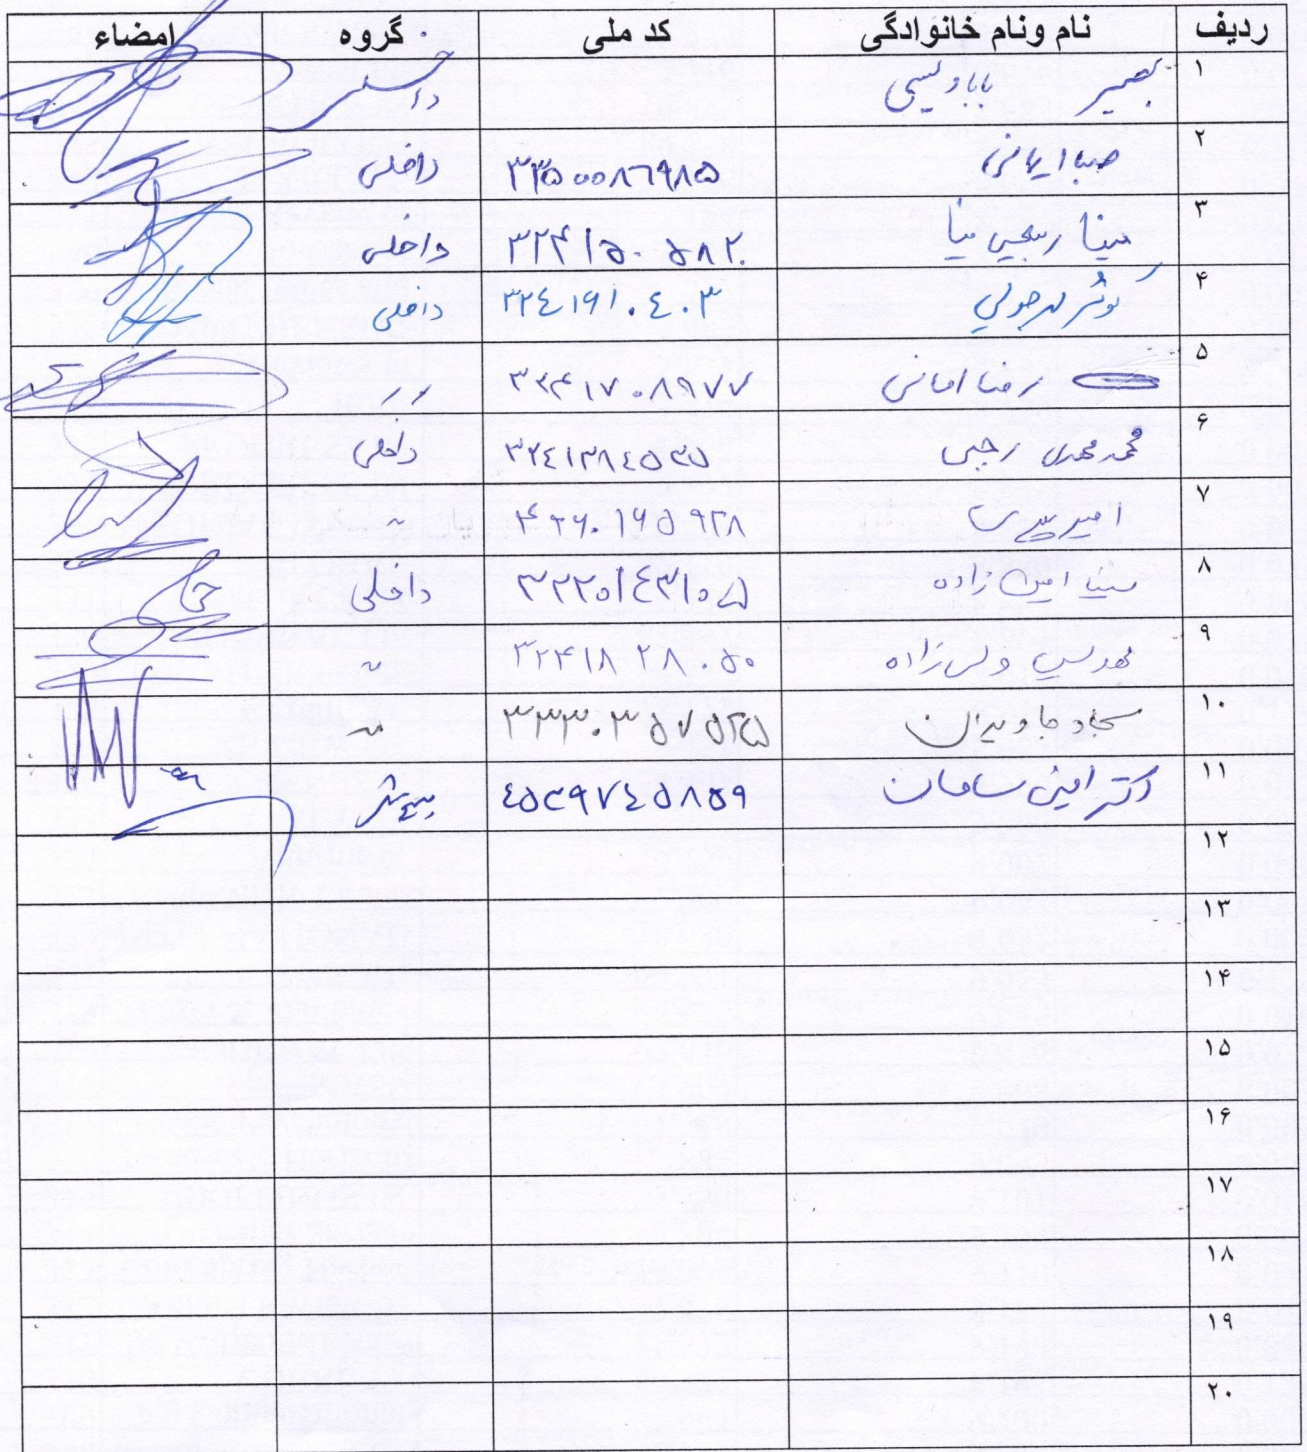 ردیف نام ونام خانوادگی کد ملی گروه امضاء
۱ بصیر باباویسی داخلی
۲ صبا ایمانی ۳۳۵۰۰۸۶۹۸۵ داخلی
۳ مینا ۳۲۴۱۵۰۵۸۲۰ داخلی
۴ کوثر ۳۲۴۱۹۱۰۴۰۳ داخلی
۵ رضا امانی ۳۲۴۱۷۰۸۹۷۷
۶ محمدمهدی رجبی ۳۲۴۱۳۸۴۵۳۵ داخلی
۷ امیر ۱۶۵۹۲۸ "
۸ امین زاده داخلی
۹ مهدیس ولی زاده ۳۲۴۱۸۲۸۰۵۰ "
۱۰ سجاد جاویدان ۳۳۳۰۳۵۷۵۲۵ "
۱۱ دکتر امین سامان ۴۵۲۹۷۴۵۸۵۹
۱۲
۱۳
۱۴
۱۵
۱۶
۱۷
۱۸
۱۹
۲۰